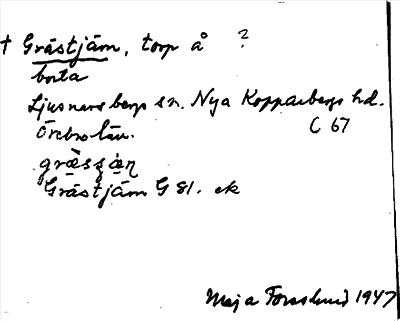 † Gråstjärn, torp å ?
borta
Ljusnarsbergs sn. Nya Kopparbergs hd.
Örebro län. C 67
Gråstjärn G 81. ek
Maja Forsslund 1947